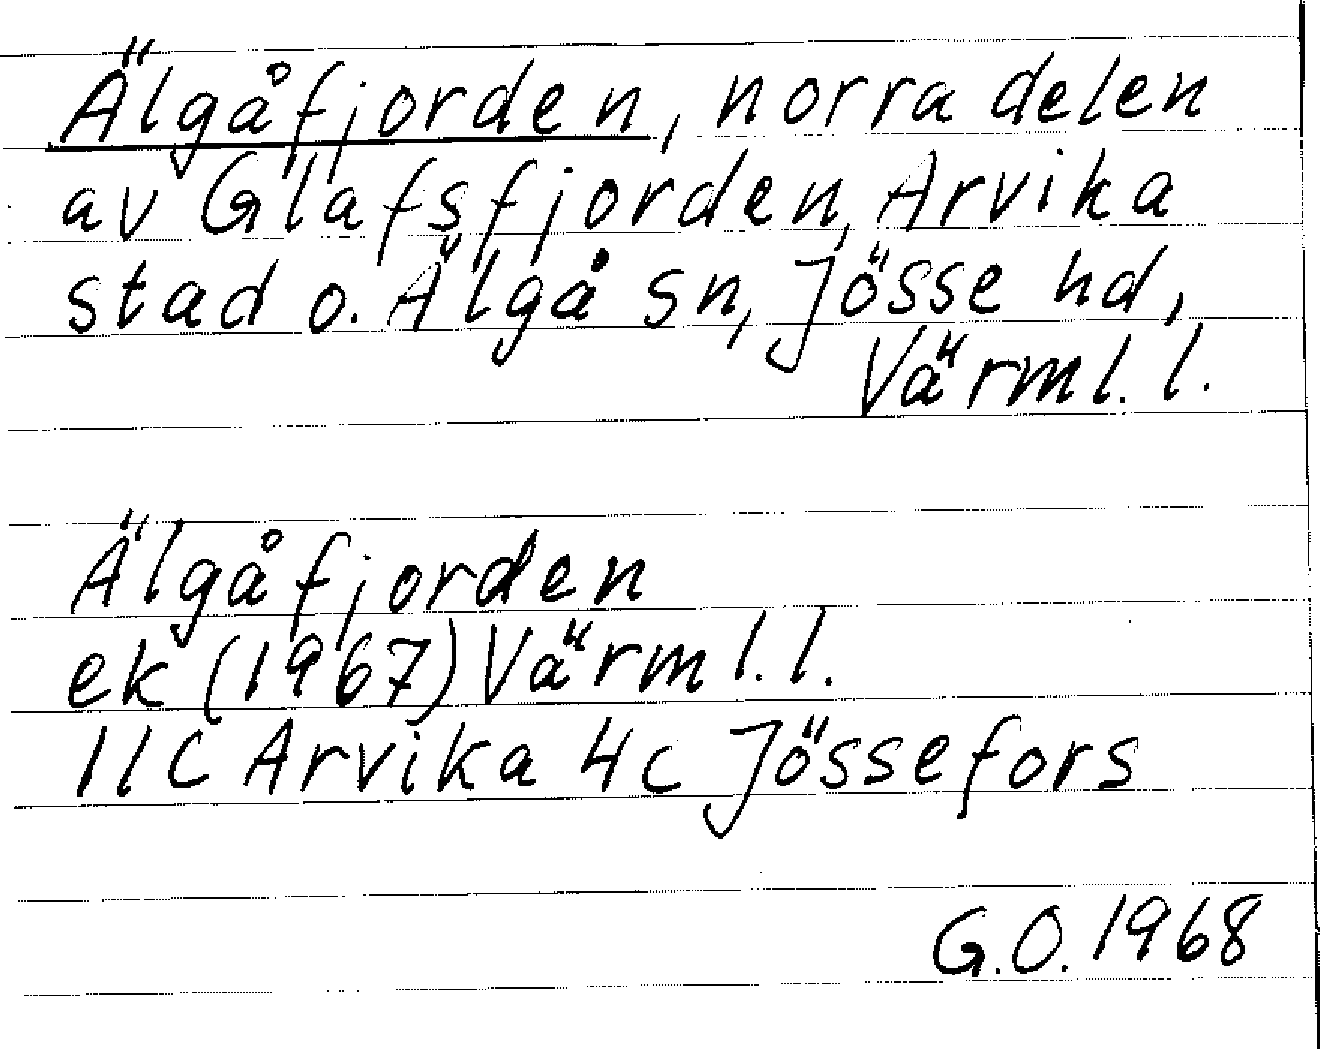 Älgåfjorden, norra delen
av Glafsfjorden, Arvika
stad o. Älgå sn, Jösse hd,
Värml. l.
Älgåfjorden
ek (1967) Värml. l.
11C Arvika 4c Jössefors
G.O. 1968